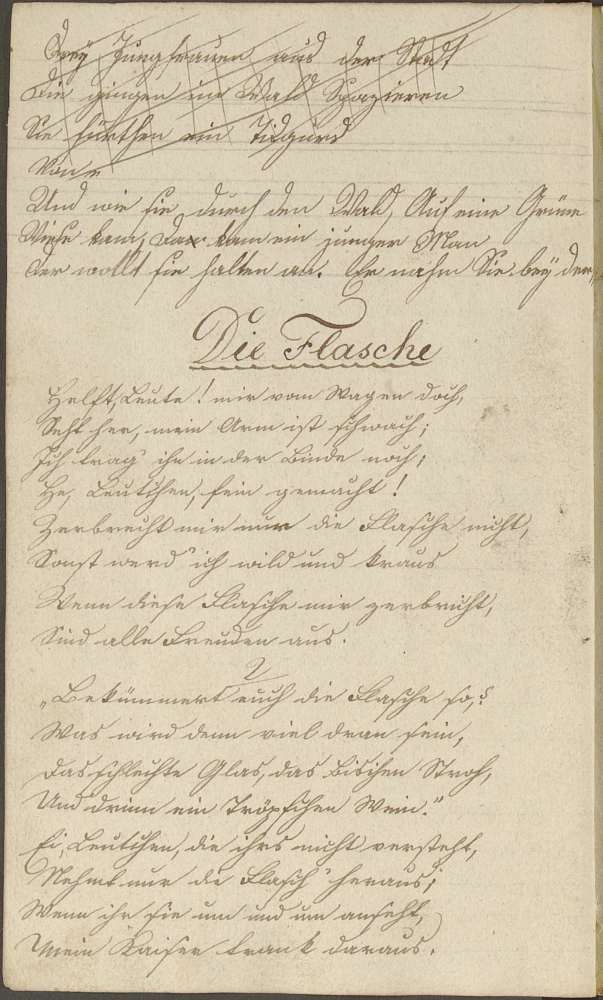 Drey Jungfrauen aus der Stadt
Die gingen im Wald Spazieren
Sie führten ein
Und wie sie durch den Wald, Auf eine Grüne
Wiese kam, Da kam ein junger Man
Der wollt sie halten an. Er nahm Sie bey der
Die Flasche
Helft, Leute! mir vom Wagen doch,
Seht her, mein Arm ist schwach;
Ich trag' ihn in der Binde noch;
He, Leutchen, fein gemacht!
Zerbrecht mir nur die Flasche nicht,
Sonst werd' ich wild und kraus
Wenn diese Flasche mir zerbricht,
Sind alle Freuden aus.
2
„Bekümmert euch die Flasche so,?
Was wird denn viel dran sein,
Das schlechte Glas, das bischen Stroh,
Und drinn ein Tröpfchen Wein."
Ei, Leutchen, die ihrs nicht versteht,
Nehmt nur die Flasch' heraus;
Wenn ihr sie um und um anseht,
Mein Kaiser trank daraus.